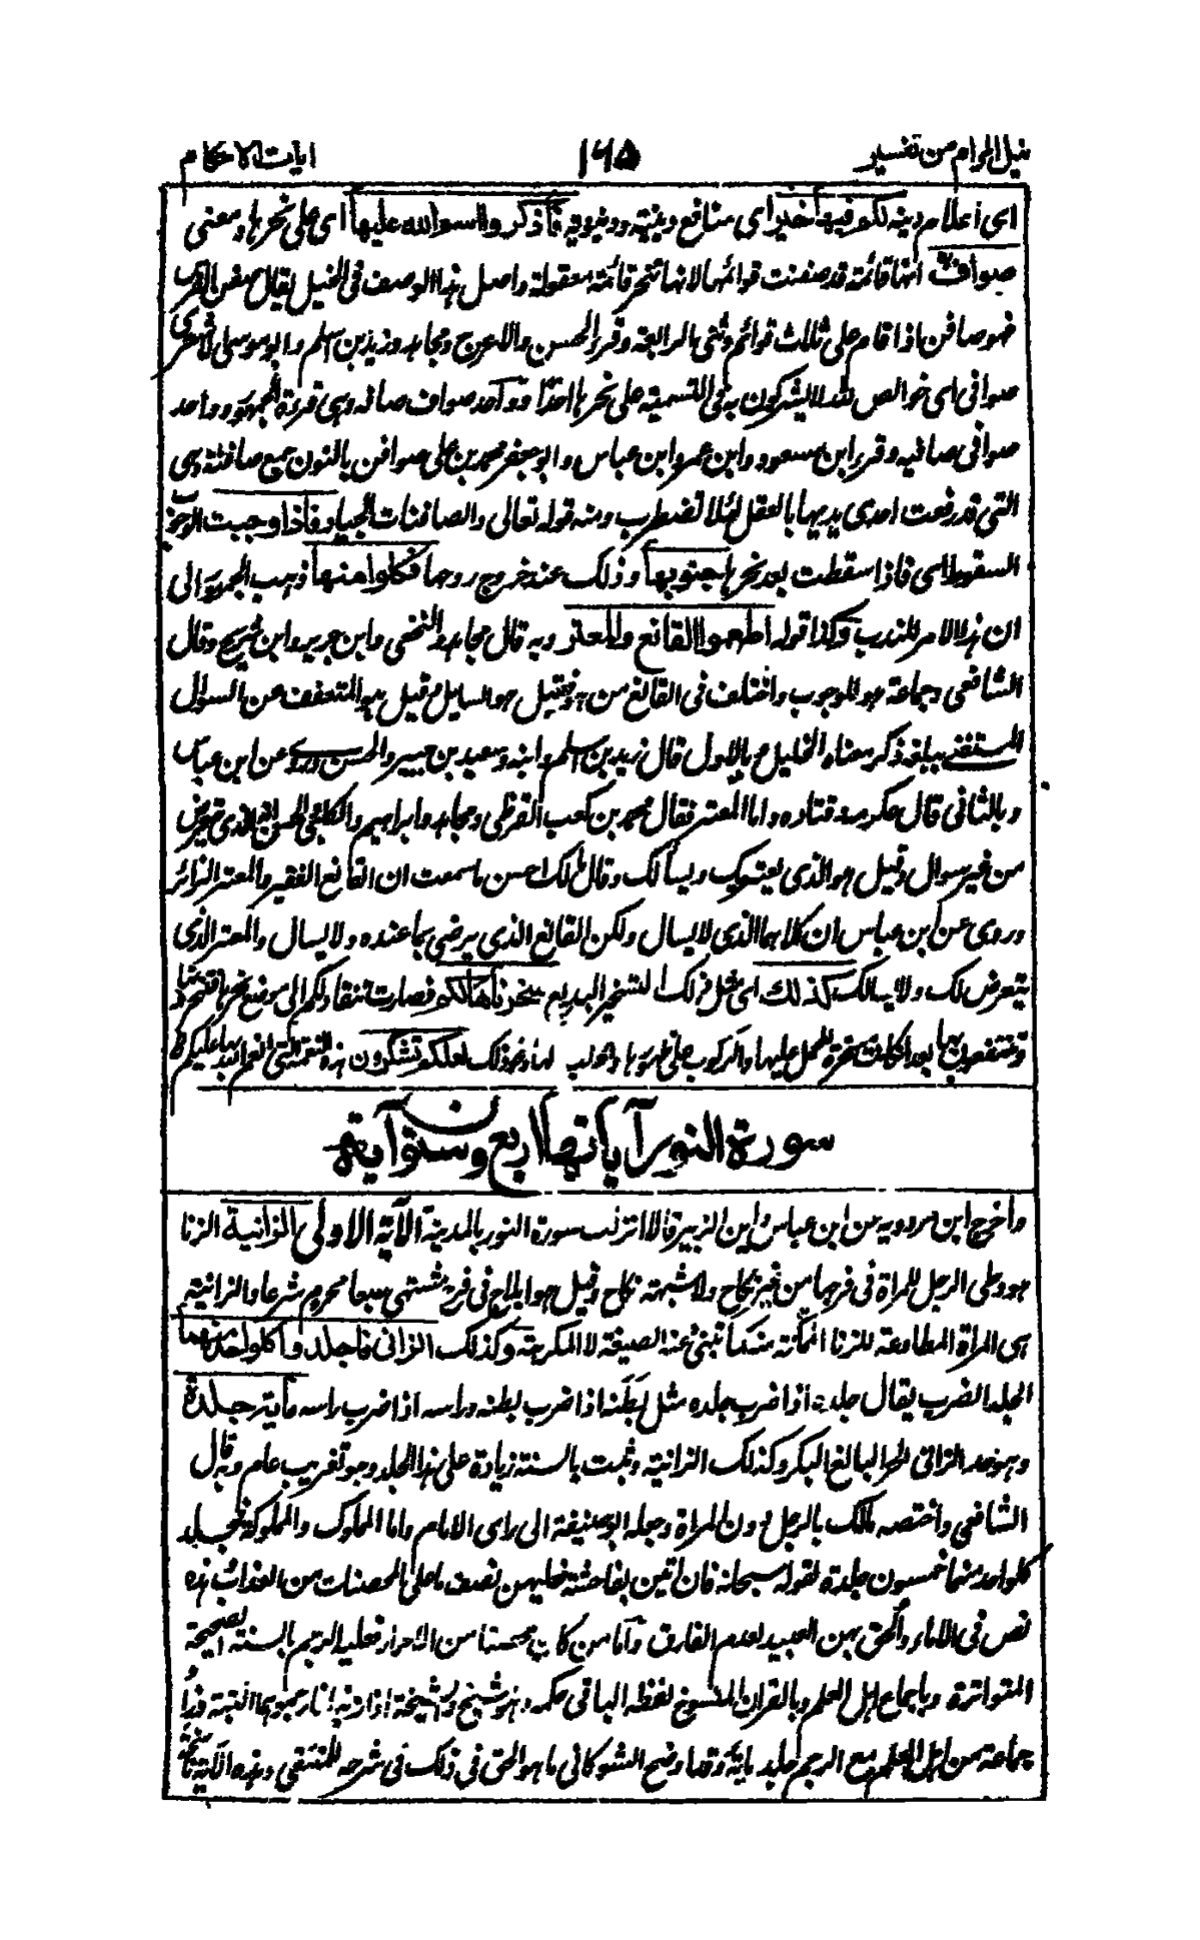 نيل المرام من تفسير ١٦٥ ايات الاحكام
اى اعلام دينه لكم فيها خير اى منافع دينية ودنيوية فاذكروا اسم الله عليها اى على نحرها ومعنى
صواف انها قائمة قد صفنت قوائمها لانها تنحر قائمة معقولة واصل هذا الوصف فى الخيل يقال صفن الفرس
فهو صافن اذا قام على ثلاث قوائم وثنى الرابعة وقرأ الحسن والاعرج ومجاهد وزيد بن اسلم وابو موسى الاشعرى
صوافى اى خوالص لله لا يشركون به فى التسمية على نحرها احدا وواحد صواف صافه وهى قراءة الجمهور وواحد
صوافى صافيه وقرء ابن مسعود وابن عمر وابن عباس وابو جعفر محمد بن على صوافن بالنون جمع صافنة وهى
التى قد رفعت احدى يديها بالعقل لئلا تضطرب ومنه قوله تعالى والصافنات الجياد فاذا وجبت الوجوب
السقوط اى فاذا سقطت بعد نحرها جنوبها وذلك عند خروج روحها فكلوا منها ذهب الجمهور الى
ان هذا الامر للندب وكذا قوله اطعموا القانع والمعتر وبه قال مجاهد والنخعى وابن جرير وابن شريح وقال
الشافعى وجماعة هو للوجوب واختلف فى القانع من هو فقيل هو السايل وقيل هو المتعفف عن السوال
المستغنى ببلغه ذكر معناه الخليل وبالاول قال زيد بن اسلم وابنه وسعيد بن جبير والحسن وروى عن ابن عباس
وبالثانى قال عكرمة وقتاده واما المعتر فقال محمد بن كعب القرظى ومجاهد وابراهيم والكلبى والحسن انه الذى يتعرض
من غير سوال وقيل هو الذى يعتريك ويسألك وقال مالك احسن ما سمعت ان القانع الفقير والمعتر الزائر
وروى عن ابن عباس ان كلاهما الذى لا يسال ولكن القانع الذى يرضى بما عنده ولا يسال والمعتر الذى
يتعرض لك ولا يسالك كذلك اى مثل ذلك التسخير البديع سخرناها لكم فصارت تنقاد لكم الى موضع نحرها
وتنتفعون بها بعد ان كانت مسخرة للحمل عليها والركوب على ظهورها والحلب لها ونحو ذلك لعلكم تشكرون هذه النعمة التى انعم الله بها عليكم
سورة النور آياتها اربع وستون آية
واخرج ابن مردويه عن ابن عباس وابن الزبير قالا انزلت سورة النور بالمدينة الآية الاولى الزانية الزنا
هو وطى الرجل للمراة فى فرجها من غير نكاح ولا شبهة نكاح وقيل هو ايلاج فرج فى فرج مشتهى طبعا محرم شرعا والزانية
هى المراة المطاوعة للزنا الممكنة منه كما تنبئ عنه الصيغة لا المكرهة وكذلك الزانى فاجلدوا كل واحد منهما
الجلد الضرب يقال جلده اذا ضرب جلده مثل بطنه اذا ضرب بطنه وراسه اذا ضرب راسه مأية جلدة
وهو حد الزانى الحر البالغ البكر وكذلك الزانية وثبت بالسنة زيادة على هذا الجلد وهو تغريب عام وبه قال
الشافعى واختصه مالك بالرجل دون المراة وجعله ابو حنيفة الى راى الامام واما المملوك والمملوكة فجلد
كل واحد منهما خمسون جلدة لقوله سبحانه فان اتين بفاحشة فعليهن نصف ما على المحصنات من العذاب هذه
نص فى الاماء والحق بهن العبيد لعدم الفارق واما من كان محصنا من الاحرار فعليه الرجم بالسنة الصحيحة
المتواترة وباجماع اهل العلم وبالقران المنسوخ لفظه الباقى حكمه وهو شيخ والشيخة اذا زنيا فارجموهما البتة وزاد
جماعة من اهل العلم مع الرجم جلد مائة وقد اوضح الشوكانى ما هو الحق فى ذلك فى شرحه للمنتقى وهذه الآية ناسخة